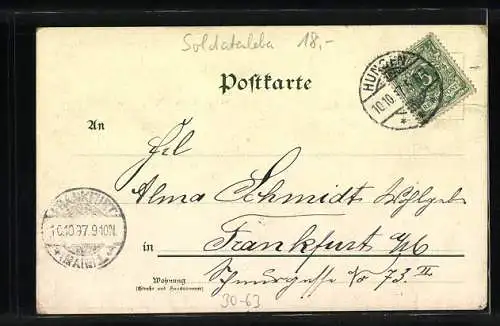 Soldatenleben 18,-
Postkarte
HUNGEN
10.10.97
5
An
Frl
Alma Schmidt Wohlgeb
FRANKFURT
10.10.97. 9-10N.
(MAIN)
in Frankfurt a/M
Wohnung
(Straße und Hausnummer)
Schnurgasse No 73 II
30-63